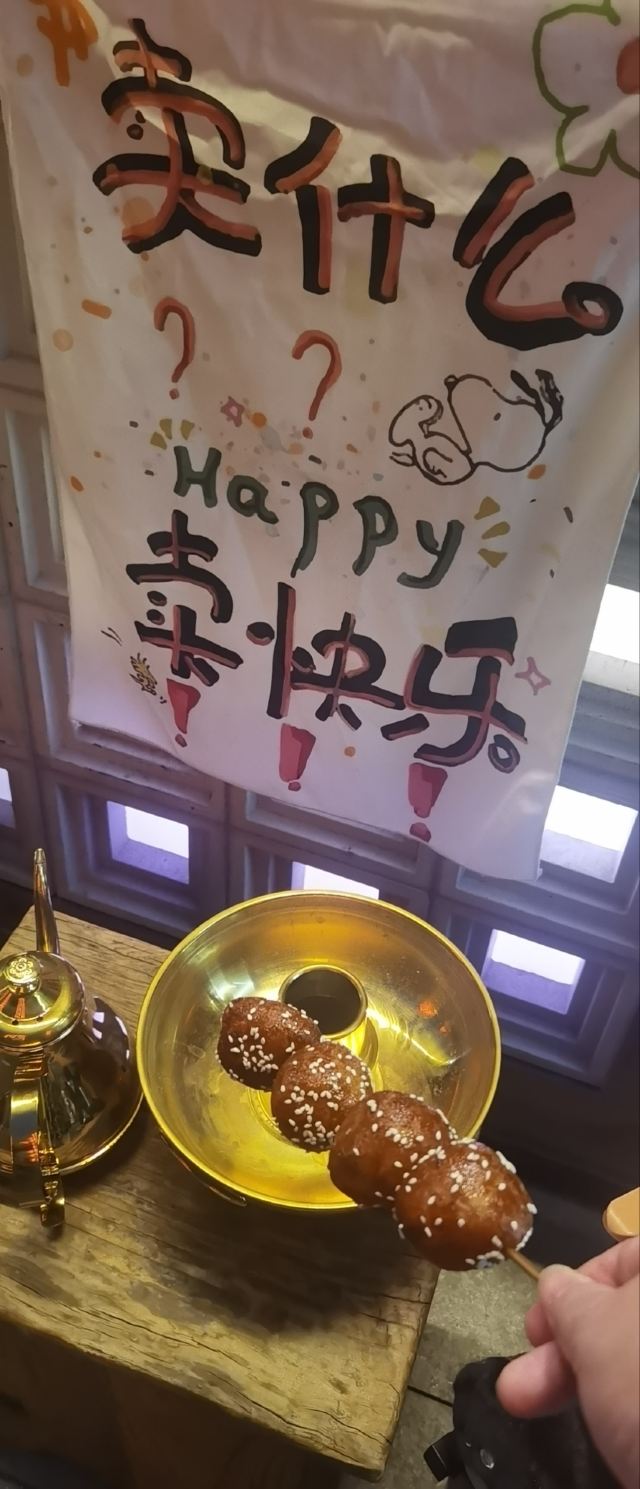 卖什么
??
Happy
卖快乐
!!!